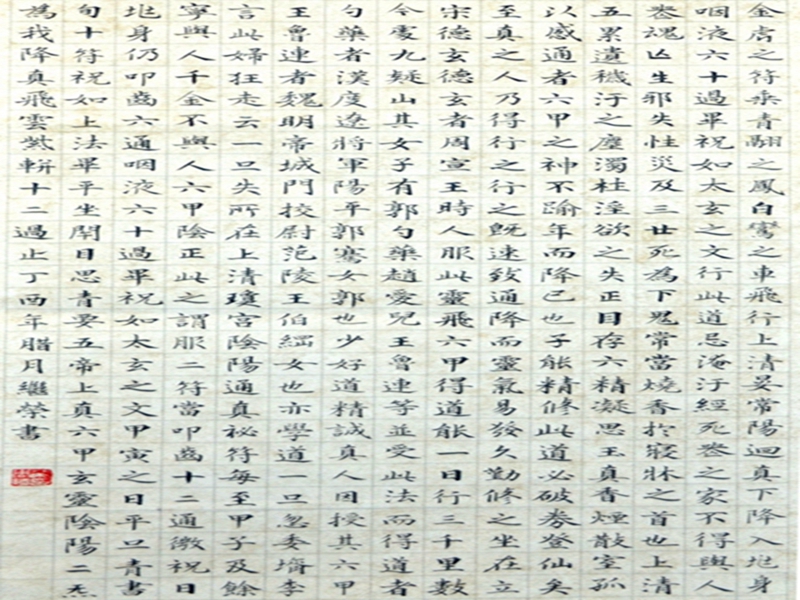 金虎之符乘青翮之鳳白鸞之車飛行上清晏常陽迴真下降入地身
咽液六十過畢祝如太玄之文行此道忌淹汙經死喪之家不得與人
喪魂亡生邪失性災及三世死為下鬼常當燒香於寢牀之首也上清
五累遺穢汙之塵濁杜淫欲之失正目存六精凝思玉真香煙散室孤
以感通者六甲之神不踰年而降已也子能精修此道必破券登仙矣
至真之人乃得行之行之既速致通降而靈氣易發久勤修之坐在立
宋德玄德玄者周宣王時人服此靈飛六甲得道能一日行三千里數
今處九疑山其女子有郭勺藥趙愛兒王魯連等並受此法而得道者
勺藥者漢度遼將軍陽平郭騫女郭也少好道精誠真人因授其六甲
王魯連者魏明帝城門挍尉范陵王伯綱女也亦學道一旦忽委壻李
言此婦狂走云一旦失所在上清瓊宮陰陽通真祕符每至甲子及餘
寧與人千金不與人六甲陰正此之謂服二符當叩齒十二通微祝日
地身仍叩齒六通咽液六十過畢祝如太玄之文甲寅之日平旦青書
旬十符祝如上法畢平坐閉目思青要五帝上真六甲玄靈陰陽二炁
為我降真飛雲紫軿十二過止丁酉年腊月繼榮書